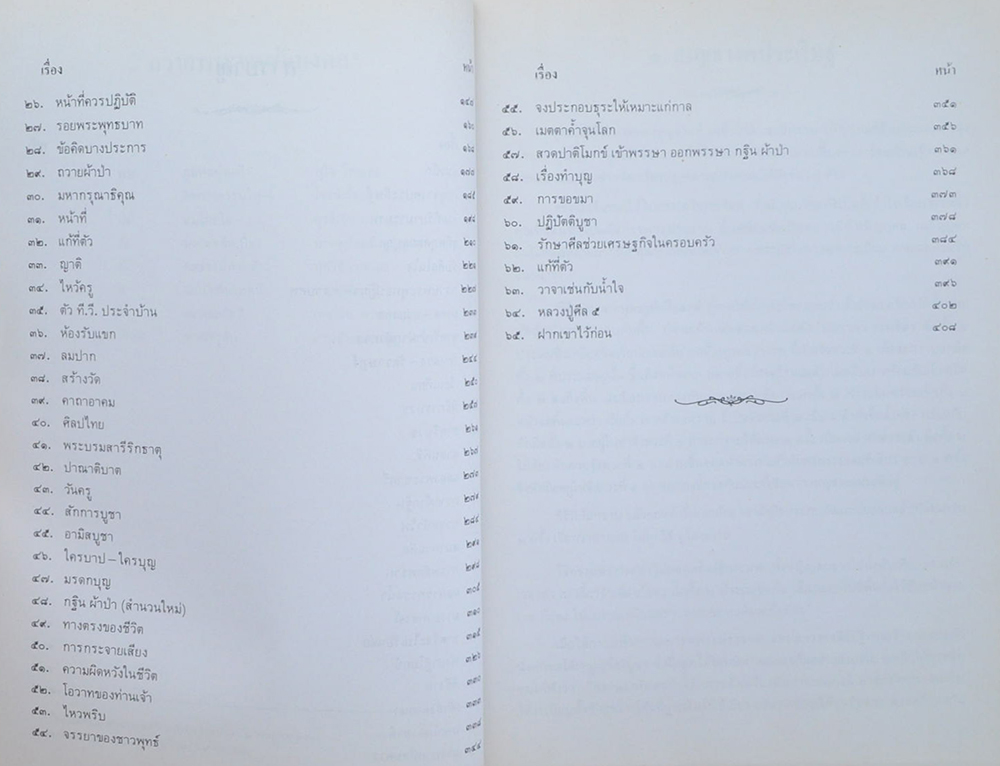 เรื่อง หน้า
๒๖. หน้าที่ควรปฏิบัติ
๒๗. รอยพระพุทธบาท
๒๘. ข้อคิดบางประการ
๒๙. ถวายผ้าป่า
๓๐. มหากรุณาธิคุณ
๓๑. หน้าที่
๓๒. แก้ที่ตัว
๓๓. ญาติ
๓๔. ไหว้ครู
๓๕. ตัว ที.วี. ประจำบ้าน
๓๖. ห้องรับแขก
๓๗. ลมปาก ๒๔๔
๓๘. สร้างวัด
๓๙. คาถาอาคม
๔๐. ศิลปไทย
๔๑. พระบรมสารีริกธาตุ
๔๒. ปาณาติบาต
๔๓. วันครู
๔๔. สักการบูชา ๒๘๔
๔๕. อามิสบูชา
๔๖. ใครบาป – ใครบุญ ๒๙๘
๔๗. มรดกบุญ ๓๐๕
๔๘. กฐิน ผ้าป่า (สำนวนใหม่) ๓๑๐
๔๙. ทางตรงของชีวิต ๓๑๕
๕๐. การกระจายเสียง ๓๒๖
๕๑. ความผิดหวังในชีวิต ๓๓๐
๕๒. โอวาทของท่านเจ้า
๕๓. ไหวพริบ ๓๓๘
๕๔. จรรยาของชาวพุทธ์ ๓๔๔
เรื่อง หน้า
๕๕. จงประกอบธุระให้เหมาะแก่กาล ๓๕๑
๕๖. เมตตาค้ำจุนโลก ๓๕๖
๕๗. สวดปาติโมกข์ เข้าพรรษา ออกพรรษา กฐิน ผ้าป่า ๓๖๑
๕๘. เรื่องทำบุญ ๓๖๘
๕๙. การขอขมา ๓๗๓
๖๐. ปฏิปัตติบูชา ๓๗๘
๖๑. รักษาศีลช่วยเศรษฐกิจในครอบครัว ๓๘๔
๖๒. แก้ที่ตัว ๓๙๑
๖๓. วาจาเช่นกับน้ำใจ ๓๙๖
๖๔. หลวงปู่ศีล ๕ ๔๐๒
๖๕. ฝากเขาไว้ก่อน ๔๐๘